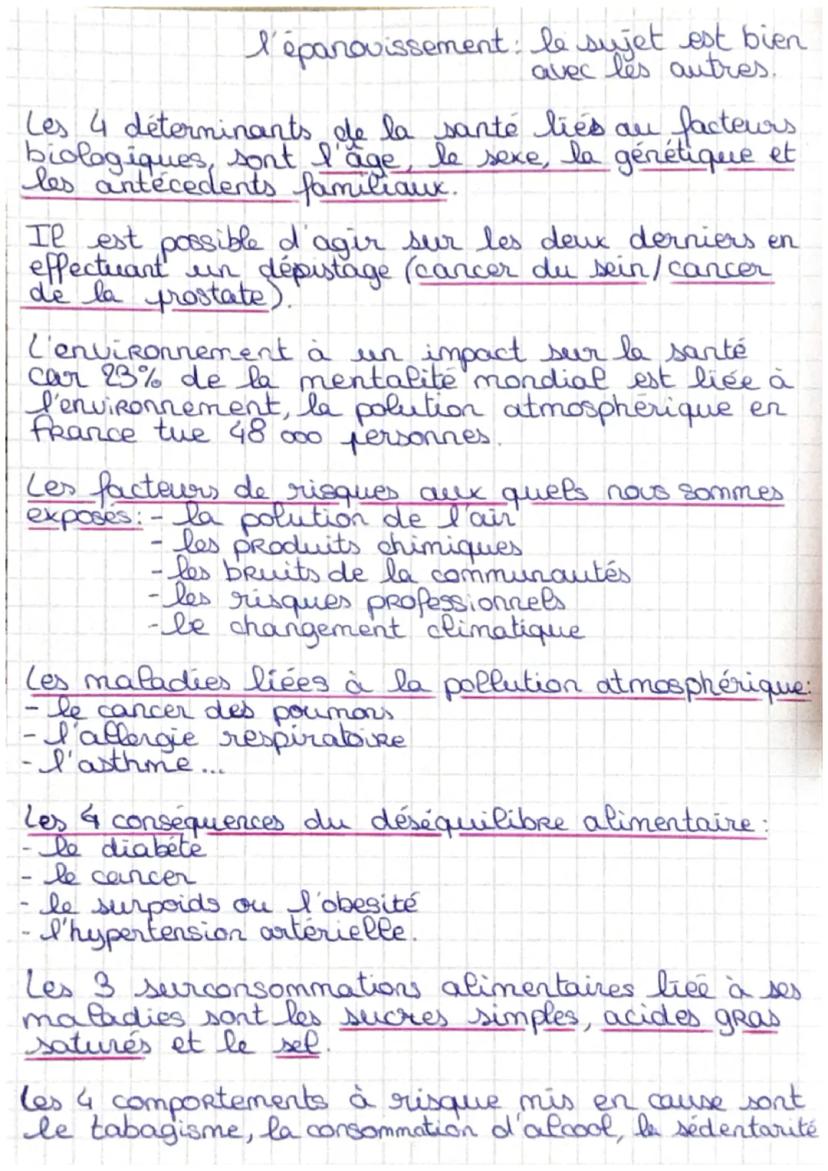 l'épanouissement : le sujet est bien
avec les autres.
Les 4 déterminants de la santé liés au facteurs
biologiques, sont l'âge, le sexe, la génétique et
les antécedents familiaux.
Il est possible d'agir sur les deux derniers en
effectuant un dépistage (cancer du sein/cancer
de la prostate).
L'environnement à un impact sur la santé
car 23% de la mentalité mondial est liée à
l'environnement, la polution atmosphérique en
france tue 48 000 personnes.
Les facteurs de risques aux quels nous sommes
exposés : - la polution de l'air
- les produits chimiques
- les bruits de la communautés
- les risques professionnels
- le changement climatique
Les maladies liées à la pollution atmosphérique :
- le cancer des poumons
- l'allergie respiratoire
- l'asthme ...
Les 4 conséquences du déséquilibre alimentaire :
- le diabéte
- le cancer
- le surpoids ou l'obesité
- l'hypertension artérielle.
Les 3 surconsommations alimentaires lieé à ses
maladies sont les sucres simples, acides gras
saturés et le sel.
Les 4 comportements à risque mis en cause sont
le tabagisme, la consommation d'alcool, la sédentarité